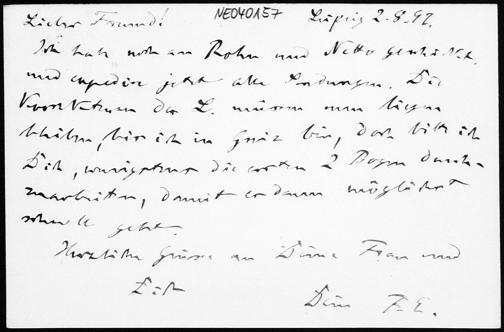 Lieber Freund! NE040157 Leipzig 2-8-92.
Ich hab noch an Rohn und Netto geschickt,
und expedire jetzt alle Sendungen. Die
Correkturen der L. müssen nun liegen
bleiben, bis ich in Graz bin, doch bitte ich
Dich, wenigstens die ersten 2 Bogen durch-
zuarbeiten, damit es dann möglichst
schnell geht.
Herzliche Grüsse an Deine Frau und
Dich Dein F. E.